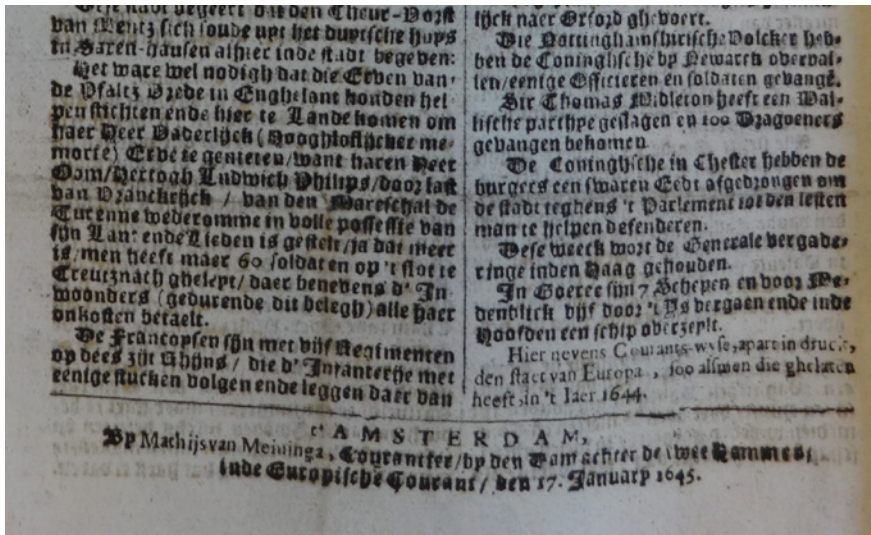 Dese nacht begeert dat den Cheur-Vorst
van Mentz sich soude upt het duytsche huys
in Saxen-hausen alhier inde stadt begeven:
Het ware wel nodigh dat die Erven van
de Pfaltz Vrede in Enghelant konden hel-
pen stichten ende hier te Lande komen om
haer Heer Vaderlijck (Hooghloflijcker me-
morie) Erve te genieten/want haren Heer
Oom/Hertogh Ludwich Philips/door last
van Vranckrijck / van den Mareschal de
Turenne wederomme in volle possessie van
sijn Lant ende Lieden is gestelt/ja dat meer
is/men heeft maer 60 soldaten op 't slot te
Creutznach gheleyt/ daer benevens d' In-
woonders (gedurende dit belegh) alle haer
onkosten betaelt.
De Francoysen sijn met vijf Regimenten
op dees zijt Rhijns / die d' Infanterije met
eenige stucken volgen ende leggen daer van
lijck naer Oxford ghevoert.
Die Nottinghamshirische Volcker heb-
ben de Coninghsche by Newarck overval-
len/eenige Officieren en soldaten gevangē.
Sir Thomas Midleton heeft een Wal-
lische parthye geslagen en 100 Dragoeners
gevangen bekomen
De Coninghsche in Chester hebben de
burgers een swaren Eedt afgedrongen om
de stadt teghens 't Parlement tot den lesten
man te helpen defenderen.
Dese weeck wort de Generale vergade-
ringe inden Haag gehouden.
In Goeree sijn 7 Schepen en voor Me-
denblick vijf door 't Ys vergaen ende inde
Hoofden een schip overzeylt.
Hier nevens Courants-wyse, apart in druck,
den staet van Europa, soo alsmen die ghelaten
heeft in 't Iaer 1644.
t' AMSTERDAM,
By Mathijs van Meininga, Courantier/by den Dam achter de twee Hammes,
inde Europische Courant/ den 17. January 1645.